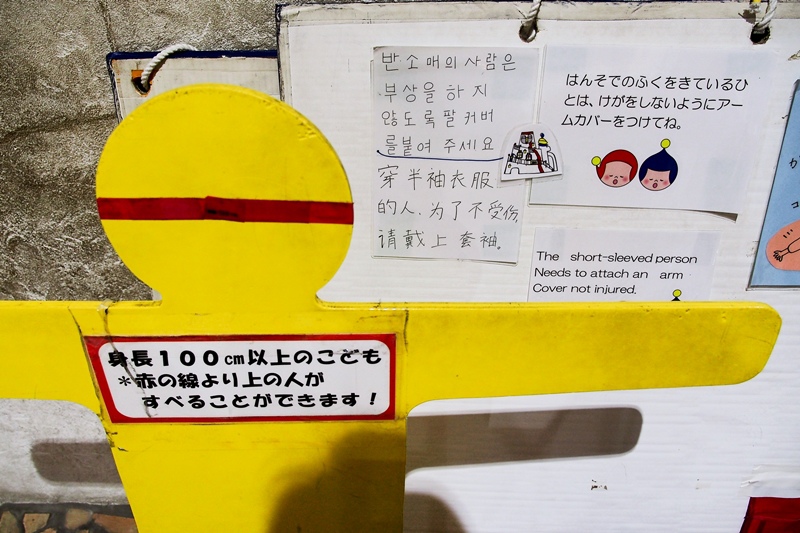 반소매의사람은
부상을하지
않도록팔커버
를붙여 주세요
穿半袖衣服
的人.为了不受伤,
请戴上套袖。
はんそでのふくをきているひ
とは、けがをしないようにアー
ムカバーをつけてね。
The short-sleeved person
Needs to attach an arm
Cover not injured.
身長100cm以上のこども
*赤の線より上の人が
すべることができます!